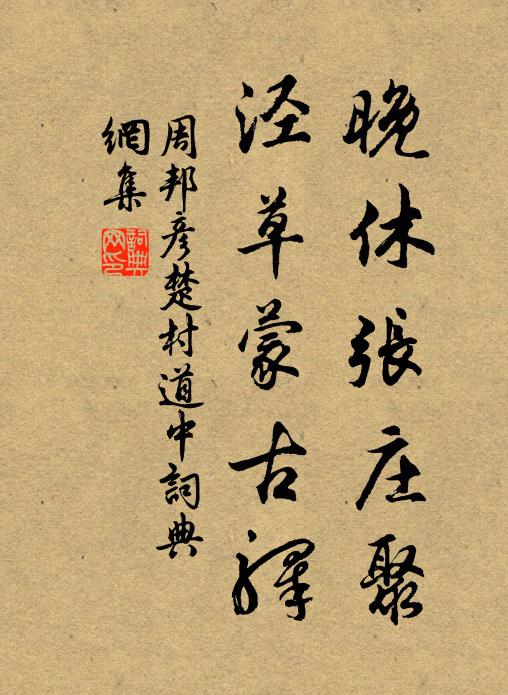 晚休張庄聚
泾草蒙古驛
周邦彦楚村道中詞典
網集
詞典網印